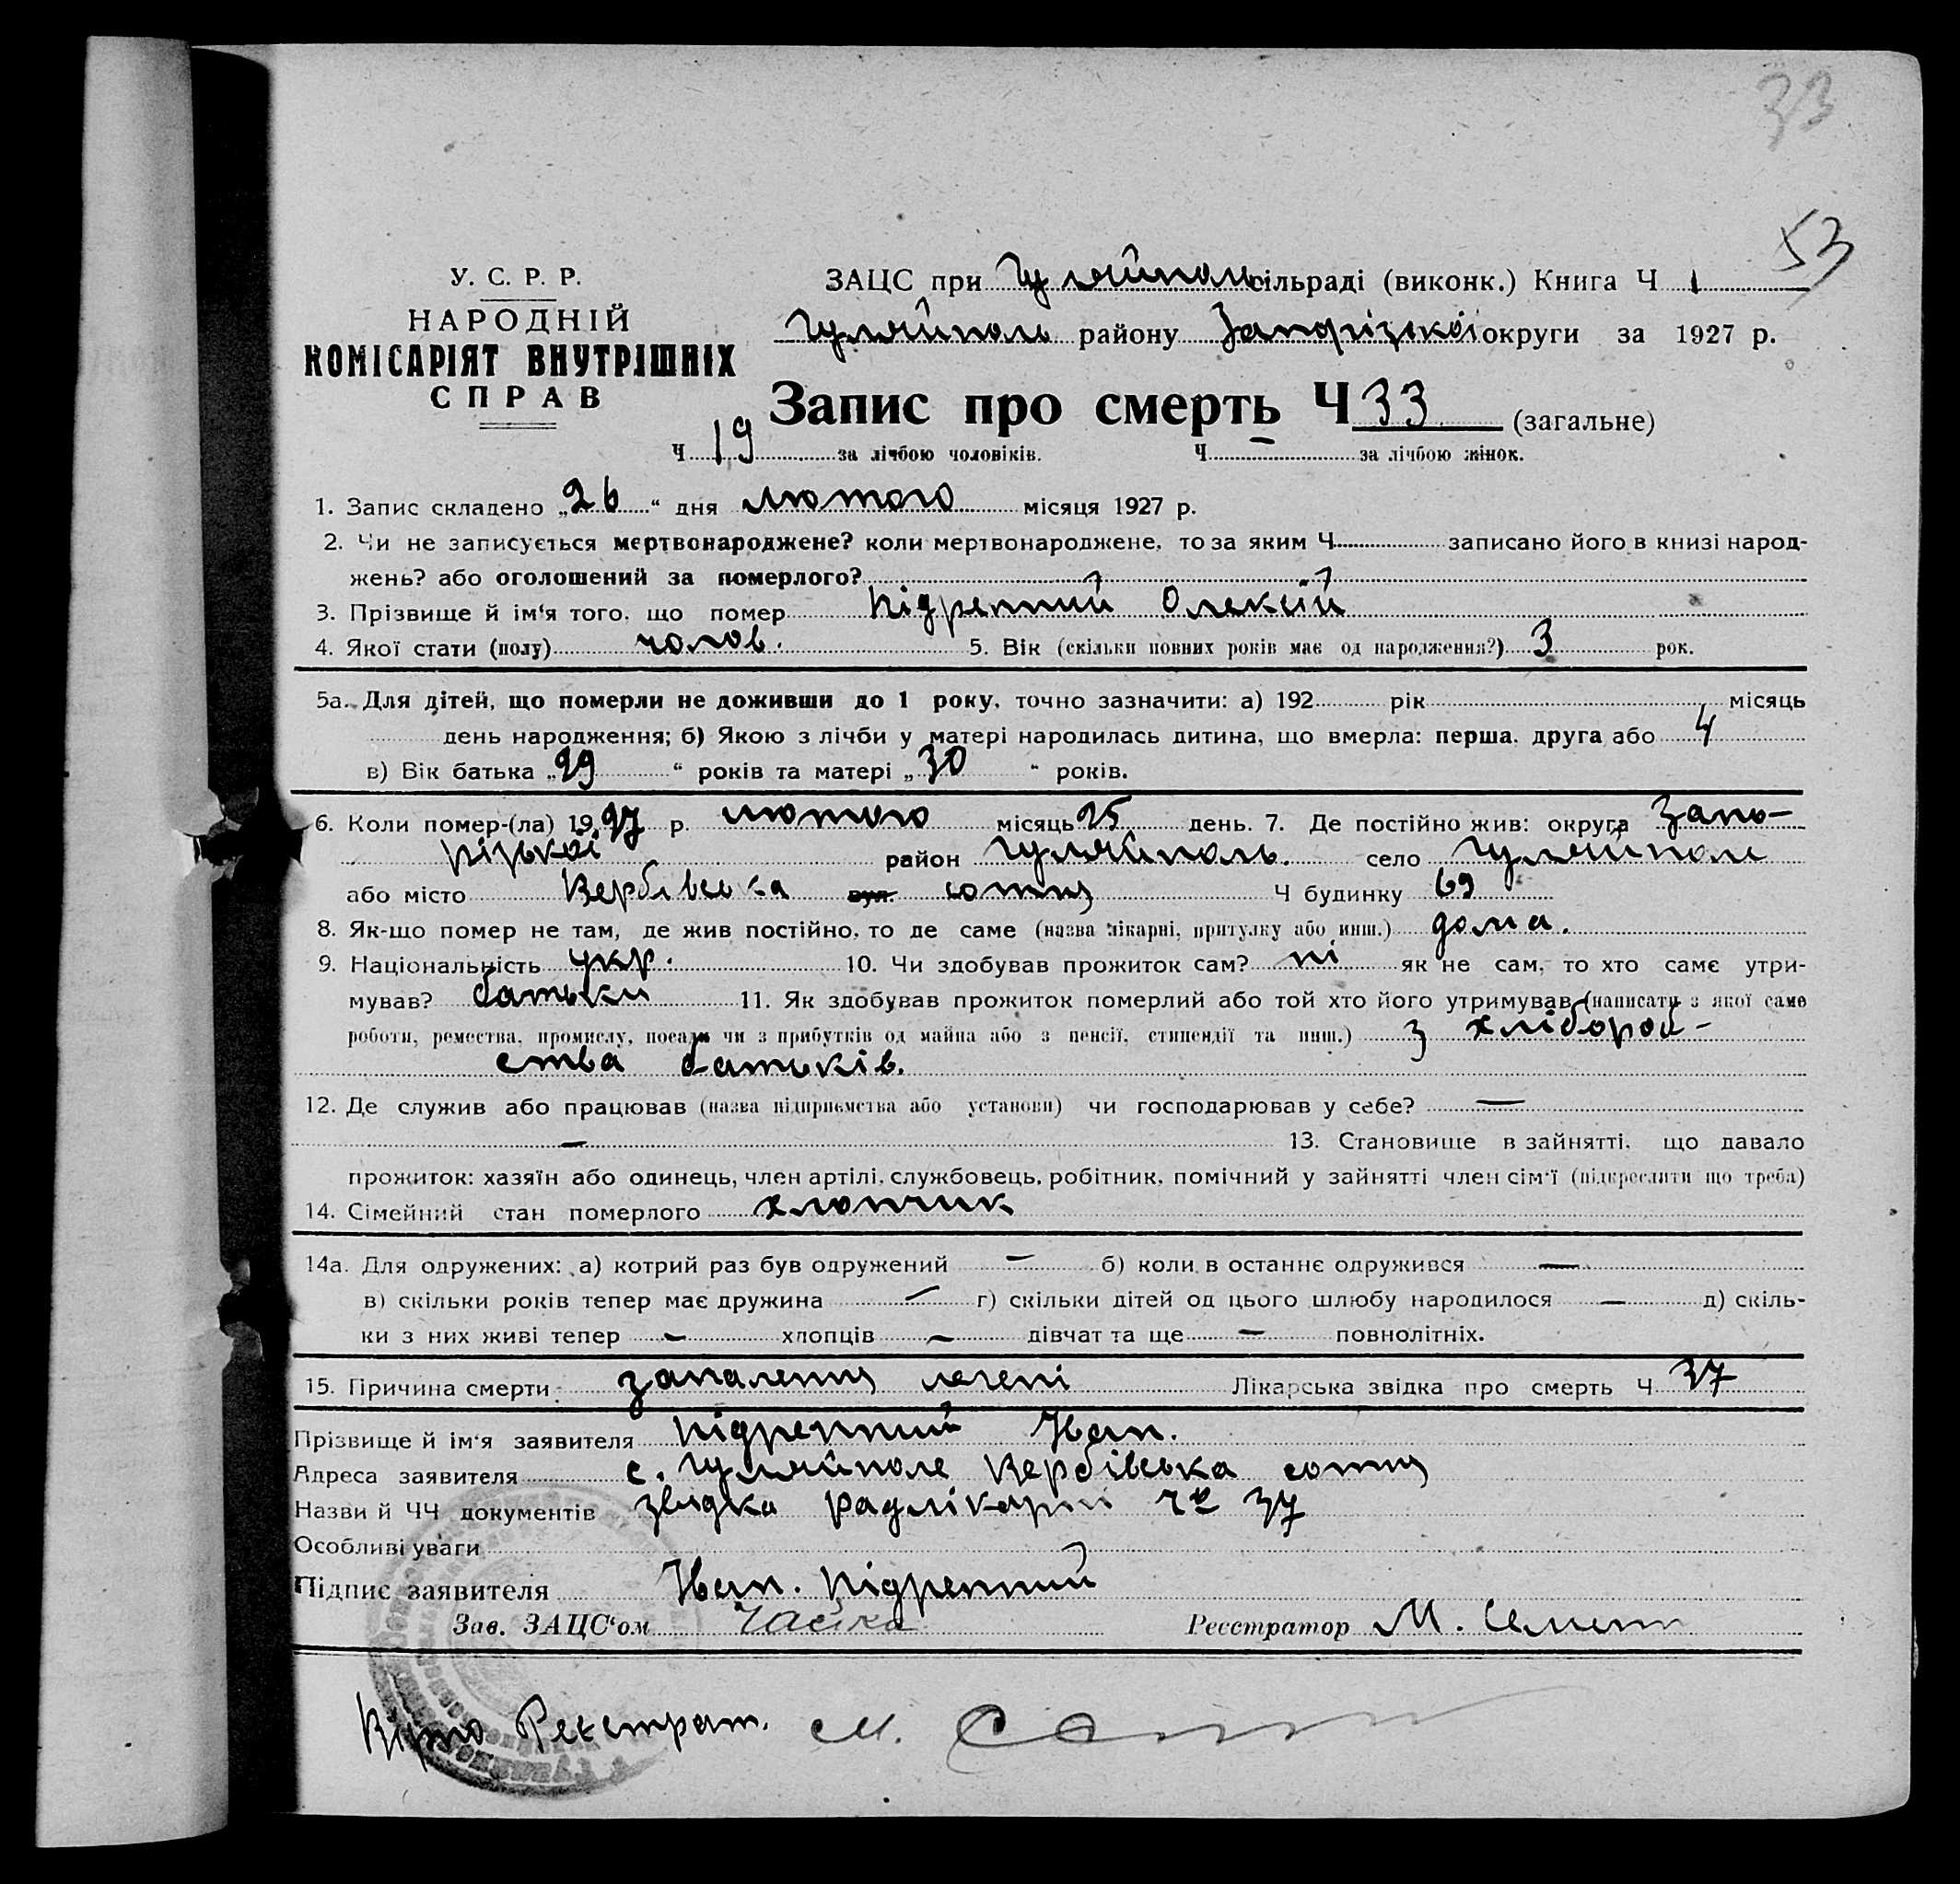 33
53
У. С. Р. Р.
НАРОДНІЙ
КОМІСАРІЯТ ВНУТРІШНІХ
СПРАВ
ЗАЦС при Гуляйполь сільраді (виконк.) Книга Ч 1
Гуляйполь району Запорізької округи за 1927 р.
Запис про смерть Ч 33 (загальне)
Ч 19 за лічбою чоловіків. Ч — за лічбою жінок.
1. Запис складено „26“ дня лютого місяця 1927 р.
2. Чи не записується мертвонароджене? коли мертвонароджене, то за яким Ч записано його в книзі народ-
жень? або оголошений за померлого?
3. Прізвище й ім‘я того, що помер Підрепний Олексій
4. Якої стати (полу) чолов. 5. Вік (скільки повних років має од народження?) 3 рок.
5а. Для дітей, що померли не доживши до 1 року, точно зазначити: а) 192 рік місяць
день народження; б) Якою з лічби у матері народилась дитина, що вмерла: перша, друга або 4
в) Вік батька „29“ років та матері „30“ років.
6. Коли помер-(ла) 1927 р. лютого місяць 25 день. 7. Де постійно жив: округа Запо-
різької район Гуляйполь. село Гуляйполе
або місто Вербівська вул. сотня Ч будинку 69
8. Як-що помер не там, де жив постійно, то де саме (назва лікарні, притулку або инш.) дома.
9. Національність укр. 10. Чи здобував прожиток сам? ні як не сам, то хто саме утри-
мував? батьки 11. Як здобував прожиток померлий або той хто його утримував (написати з якої саме
роботи, ремества, промислу, посади чи з прибутків од майна або з пенсії, стипендії та инш.) з хлібороб-
ства батьків.
12. Де служив або працював (назва підприємства або установи) чи господарював у себе? —
— 13. Становище в зайнятті, що давало
прожиток: хазяїн або одинець, член артілі, службовець, робітник, помічний у зайнятті член сім‘ї (підкреслити що треба)
14. Сімейний стан померлого хлопчик
14а. Для одружених: а) котрий раз був одружений — б) коли в останнє одружився —
в) скільки років тепер має дружина — г) скільки дітей од цього шлюбу народилося — д) скіль-
ки з них живі тепер — хлопців — дівчат та ще — повнолітніх.
15. Причина смерти: запалення легені Лікарська звідка про смерть Ч 37
Прізвище й ім‘я заявителя Підрепний Іван.
Адреса заявителя с. Гуляйполе Вербівська сотня
Назви й ЧЧ документів звідка радлікарні 37
Особливі уваги
Підпис заявителя Іван. Підрепний
Зав. ЗАЦС‘ом Чайка Реєстратор М.
Вірно Реєстрат. М.